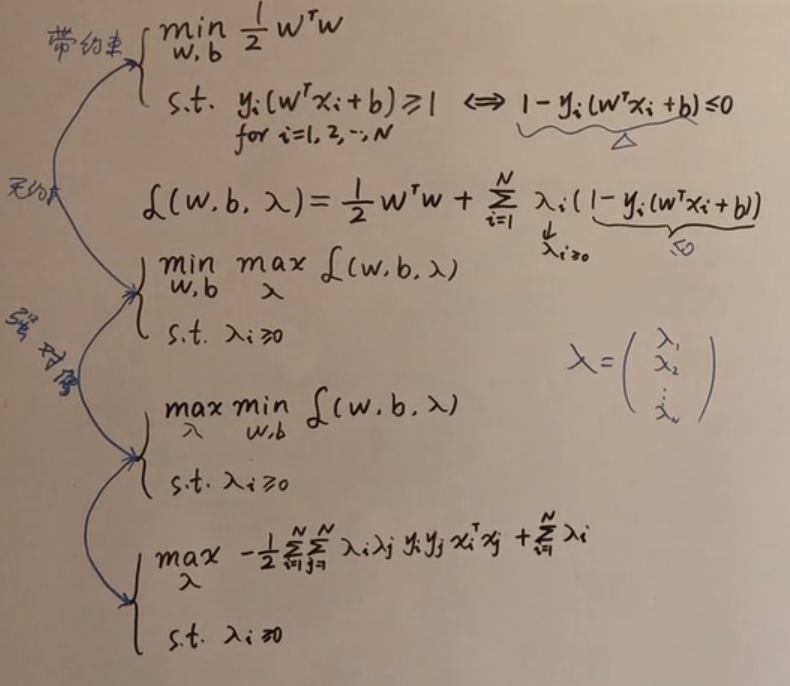 带约束 { min_{w,b} 1/2 wᵀw
s.t. yᵢ(wᵀxᵢ+b)≥1 ⟺ 1-yᵢ(wᵀxᵢ+b)≤0
for i=1,2,…,N Δ
无约束 ℒ(w,b,λ)=1/2 wᵀw + Σ_{i=1}^{N} λᵢ(1-yᵢ(wᵀxᵢ+b))
λᵢ≥0 ≤0
{ min_{w,b} max_λ ℒ(w,b,λ)
s.t. λᵢ≥0
强对偶
λ=(λ₁ λ₂ ⋮ λ_N)
{ max_λ min_{w,b} ℒ(w,b,λ)
s.t. λᵢ≥0
{ max_λ -1/2 Σ_{i=1}^{N} Σ_{j=1}^{N} λᵢλⱼ yᵢyⱼ xᵢᵀxⱼ + Σ_{i=1}^{N} λᵢ
s.t. λᵢ≥0